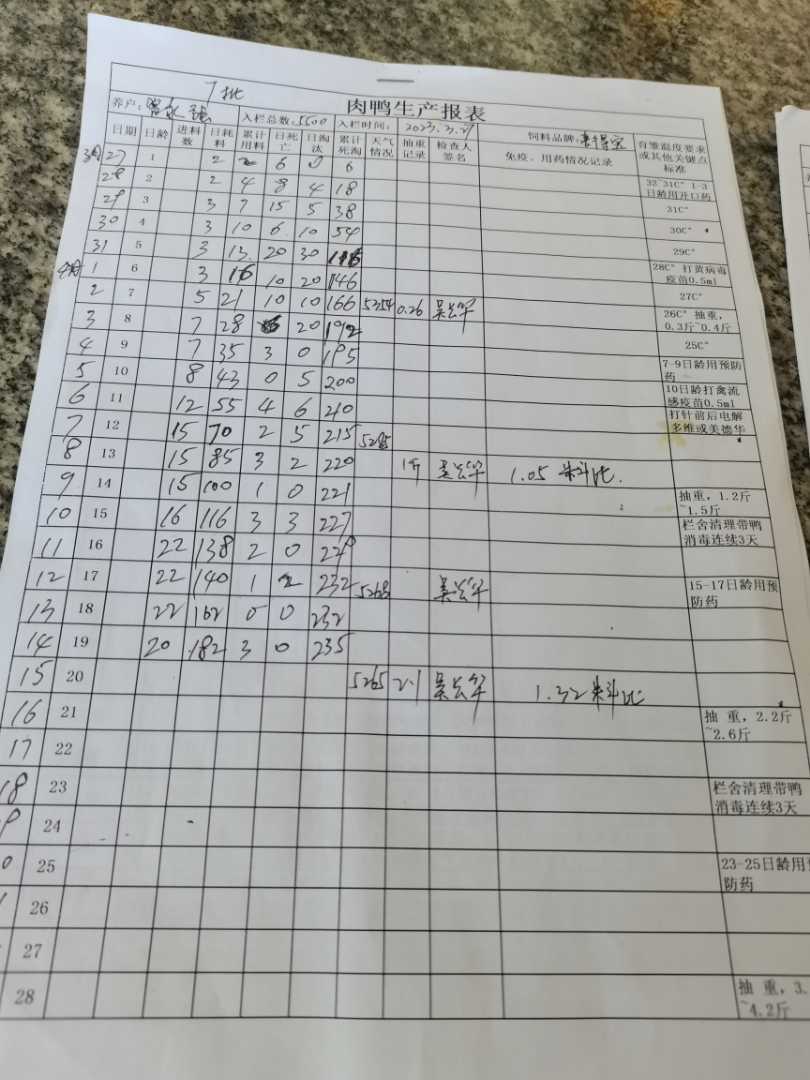 7批
肉鸭生产报表
养户: 入栏总数:5500 入栏时间: 2023.3.27 饲料品牌:
日期 日龄 进料数 日耗料 累计用料 日死亡 日淘汰 累计死淘 天气情况 抽重记录 检查人签名 免疫、用药情况记录 育雏温度要求或其他关键点标准
3月27 1 2 2 6 0 6
28 2 2 4 8 4 18 32-31C° 1-3日龄用开口药
29 3 3 7 15 5 38 31C°
30 4 3 10 6 10 54 30C°
31 5 3 13 20 30 116 29C°
4月1 6 3 16 10 20 146 28C° 打黄病毒疫苗0.5ml
2 7 5 21 10 10 166 5354 0.26 吴公华 27C°
3 8 7 28 20 192 26C° 抽重,0.3斤~0.4斤
4 9 7 35 3 0 195 25C°
5 10 8 43 0 5 200 7-9日龄用预防药
6 11 12 55 4 6 210 10日龄打禽流感疫苗0.5ml
7 12 15 70 2 5 215 5285 打针前后电解多维或美德华
8 13 15 85 3 2 220 1斤 吴公华 1.05 料比.
9 14 15 100 1 0 221 抽重,1.2斤~1.5斤
10 15 16 116 3 3 227 栏舍清理带鸭消毒连续3天
11 16 22 138 2 0 229
12 17 22 140 1 2 232 5268 吴公华 15-17日龄用预防药
13 18 22 162 0 0 232
14 19 20 182 3 0 235
15 20 5265 2.1 吴公华 1.32 料比
16 21 抽重,2.2斤~2.6斤
17 22
18 23 栏舍清理带鸭消毒连续3天
9 24
0 25 23-25日龄用预防药
26
27
28 抽重,3.~4.2斤